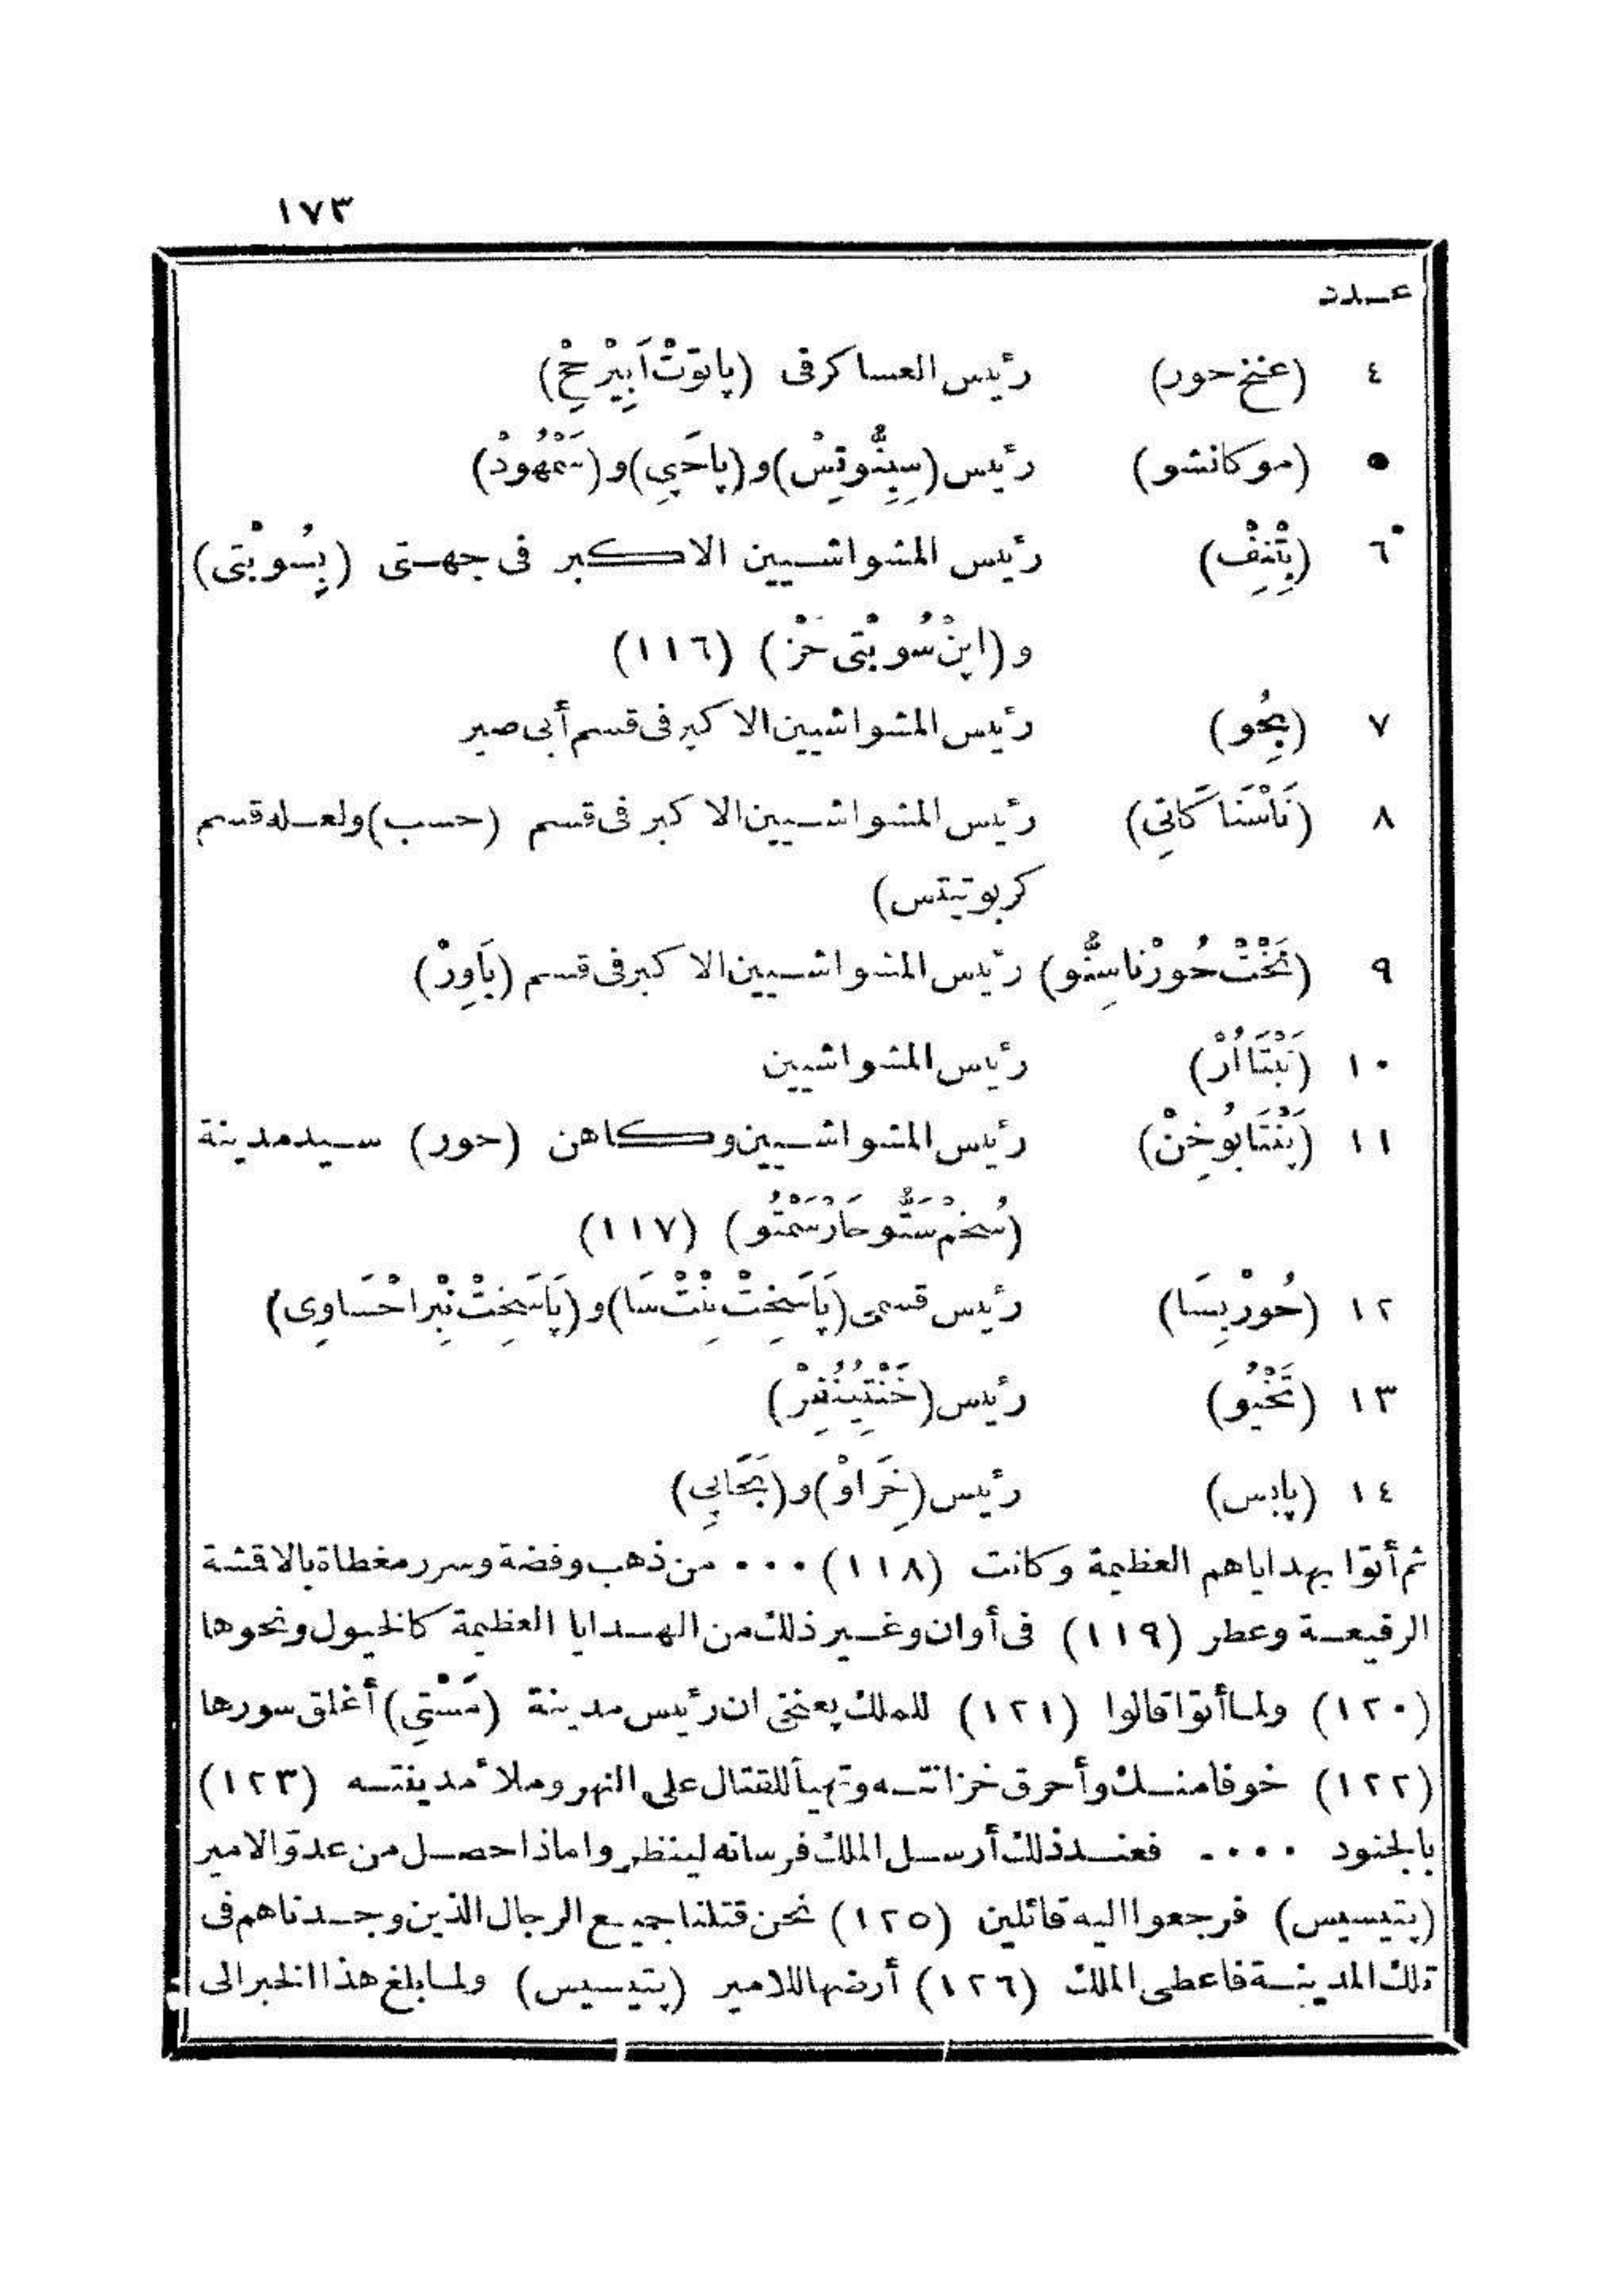 ١٧٣
عدد
٤ (عنخ حور) رئيس العساكر فى (پاتوَتْ اَپِيْرحِحْ)
٥ (موكانشو) رئيس (سِبِنُّوتِسْ) و(پاحَپِى) و(سَمْهُودْ)
٦ (بِتْنِفْ) رئيس المشواشيين الاكبر فى جهتى (پِسُوبْتى)
و (اپنْ سُوبْتى حَزْ) (١١٦)
٧ (بِحُو) رئيس المشواشيين الاكبر فى قسم أبى صير
٨ (نَاسْنَاكَاتِى) رئيس المشواشيين الاكبر فى قسم (حسب) ولعله قسم
كربوتيتس)
٩ (نَخْتْ حُورْناسِنُّو) رئيس المشواشيين الاكبر فى قسم (بَاوِرْ)
١٠ (نَبْتَااُرْ) رئيس المشواشيين
١١ (پَنْتَابُوخِنْ) رئيس المشواشيين وكاهن (حور) سيد مدينة
(سُخمْ سَتُّو حَارْسَمْتُو) (١١٧)
١٢ (حُورْبِسَا) رئيس قسمى (پَاسَخِتْ نِنْتْ سَا) و(پَاسَخِتْ نِبْراحْسَاوِى)
١٣ (تَخْيُو) رئيس (خَنْتِينُنِفِرْ)
١٤ (پابس) رئيس (خِرَاوْ) و(بَحَاپِى)
ثم أتوا بهداياهم العظيمة وكانت (١١٨) ٠٠٠ من ذهب وفضة وسرر مغطاة بالاقشة
الرفيعة وعطر (١١٩) فى أوان وغير ذلك من الهدايا العظيمة كالخيول ونحوها
(١٢٠) ولما أتوا قالوا (١٢١) للملك پعنخى ان رئيس مدينة (مَسْتِى) أغلق سورها
(١٢٢) خوفا منك وأحرق خزانته وتهيأ للقتال على النهر وملأ مدينته (١٢٣)
بالجنود ٠٠٠٠ فعند ذلك أرسل الملك فرسانه لينظروا ماذا حصل من عدوّ الامير
(پتيسيس) فرجعوا اليه قائلين (١٢٥) نحن قتلنا جميع الرجال الذين وجدناهم فى
تلك المدينة فاعطى الملك (١٢٦) أرضها للامير (پتيسيس) ولما بلغ هذا الخبر الى